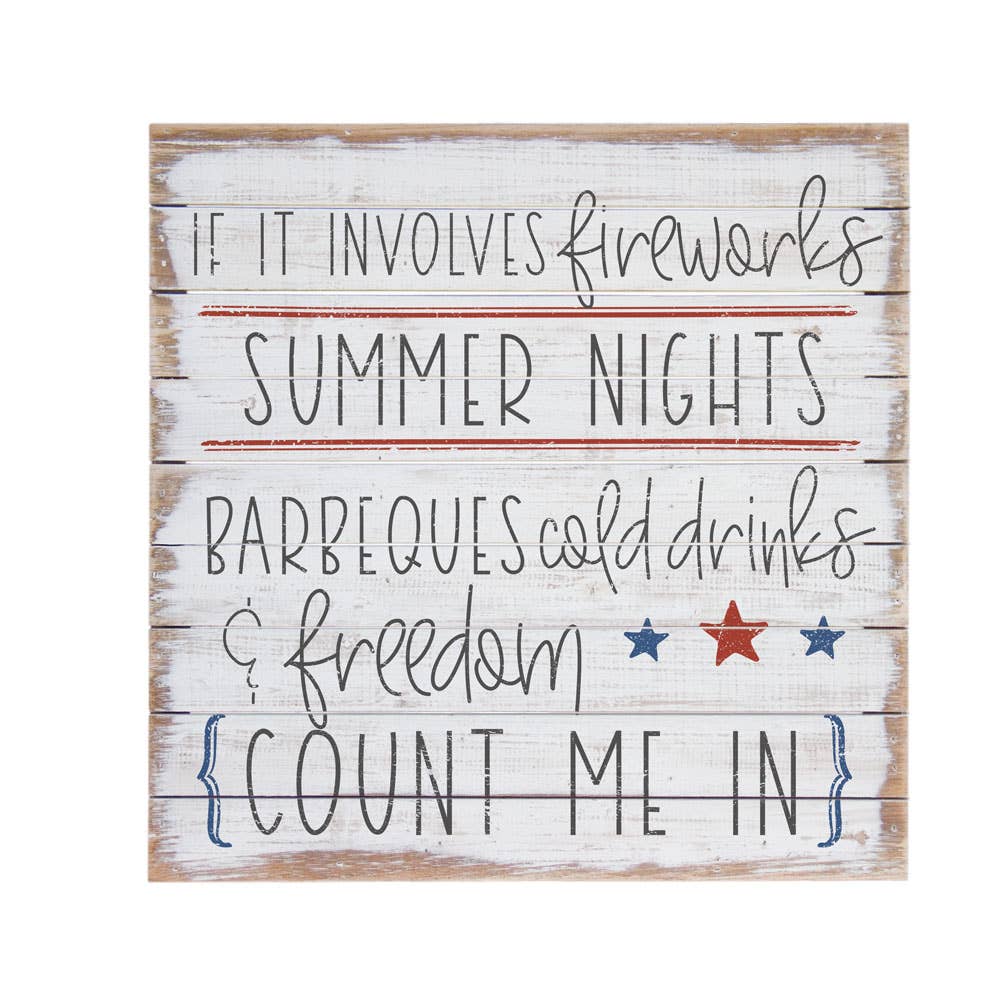 IF IT INVOLVES fireworks
SUMMER NIGHTS
BARBEQUES cold drinks
& freedom
{COUNT ME IN}